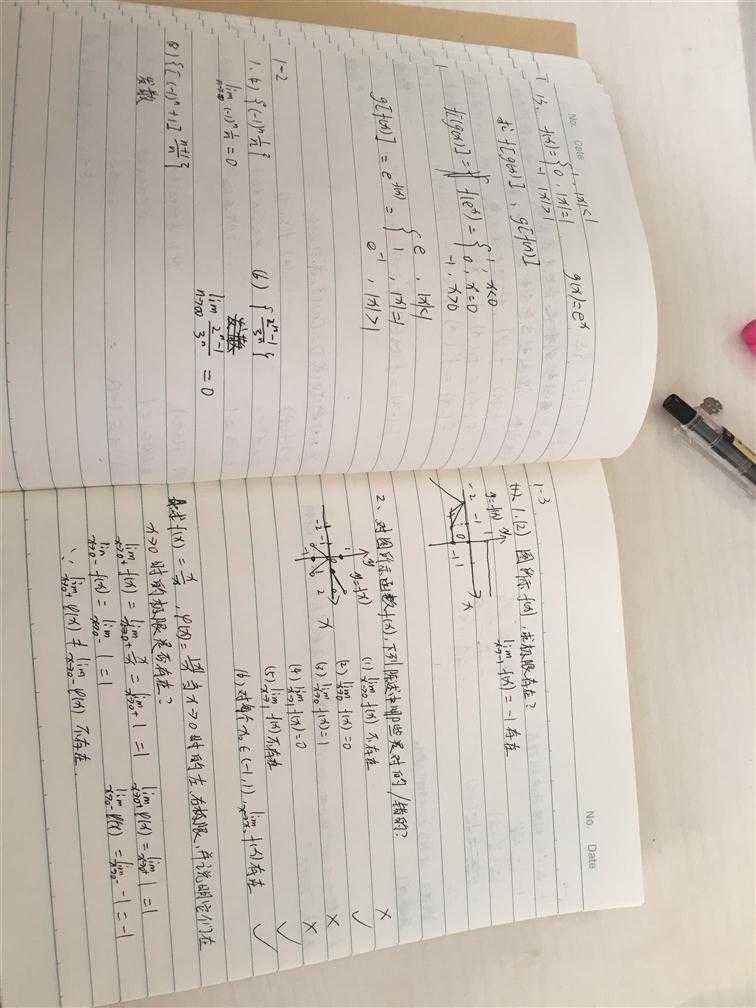 No. Date
T 13. f(x)={ 1, |x|<1
0, |x|=1
-1, |x|>1
g(x)=eˣ
求f[g(x)], g[f(x)]
f[g(x)]= f(eˣ)={ 1, x<0
0, x=0
-1, x>0
g[f(x)] = e^f(x) = { e, |x|<1
1, |x|=1
e⁻¹, |x|>1
1-2
1. (4) {(-1)ⁿ 1/n}
lim n→∞ (-1)ⁿ 1/n = 0
(6) {(2ⁿ-1)/3ⁿ}
发散
lim n→∞ (2ⁿ-1)/3ⁿ = 0
8) {[(-1)ⁿ+1] (n+1)/n}
发散
No. Date
1-3
1. (2) 图所示f(x), 求极限存在?
lim x→-1 f(x) = -1 存在
y=f(x) y
-2 -1 0 1 x
-1
2、对图所示函数f(x),下列陈述中哪些是对的/错的?
y y=f(x)
-2 -1 1 2 x
-1
(1) lim x→0 f(x) 不存在 ×
(2) lim x→0 f(x)=0 ✓
(3) lim x→0 f(x)=1 ×
(4) lim x→1 f(x)=0 ×
(5) lim x→1 f(x)不存在 ✓
(6) 对每个x₀∈(-1,1), lim x→x₀ f(x)存在 ✓
求f(x)=x/x, φ(x)=|x|/x 当x→0时的左右极限,并说明它们在
x→0时的极限是否存在?
lim x→0⁺ f(x) = lim x→0⁺ x/x = lim x→0⁺ 1 = 1
lim x→0⁺ φ(x) = lim x→0⁺ 1 = 1
lim x→0⁻ f(x) = lim x→0⁻ 1 = 1
lim x→0⁻ φ(x) = lim x→0⁻ -1 = -1
∵ lim x→0⁺ φ(x) ≠ lim x→0⁻ φ(x) 不存在